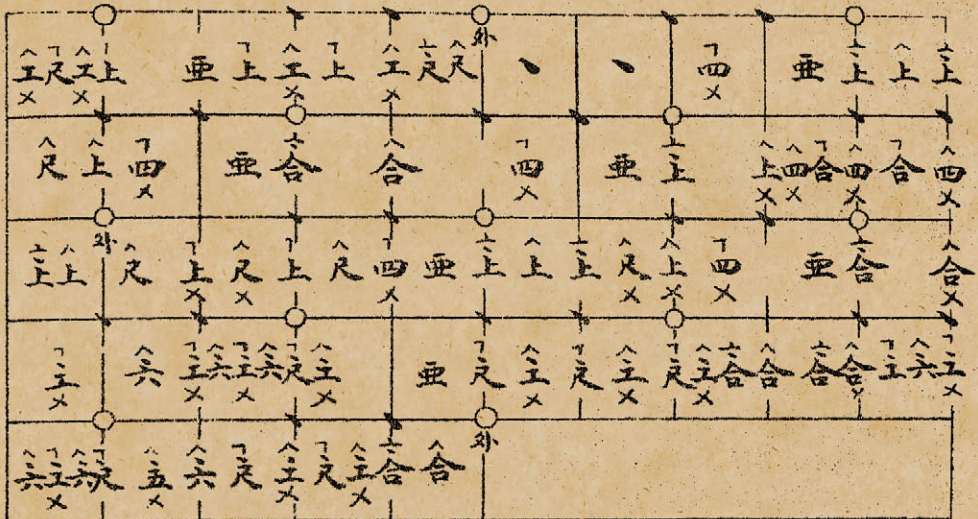 外
工尺工上亜上工上工尺尺丶丶四亜上上上
尺上四亜合合四亜上上四合四合四
外
上上尺上尺上尺四亜上上上尺上四亜合合
工六工六工六尺工亜尺工尺工尺工合合合合工六工
外
六工六尺五六尺工尺工合合